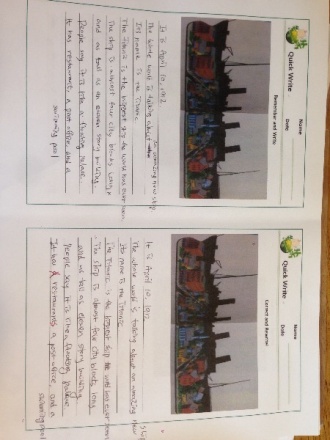 Quick Write
Name
Date
Remember and Write
It is April 10, 1912
The whole world is talking about an amazing new ship
Its name is the Titanic
The Titanic is the biggest ship the world has ever seen
The ship is almost four city blocks long
and as tall as an eleven story building
People say it is like a floating palace
It has restaurants, a post office, and a
swimming pool
Quick Write
Name
Date
Correct and Rewrite
It is April 10, 1912
The whole world is talking about an amazing new
ship
Its name is the Titanic
The Titanic is the biggest ship the world has ever seen
The ship is almost four city blocks long
and as tall as eleven story building
People say it is like a floating palace
It has restaurants, a post office, and a
swimming pool